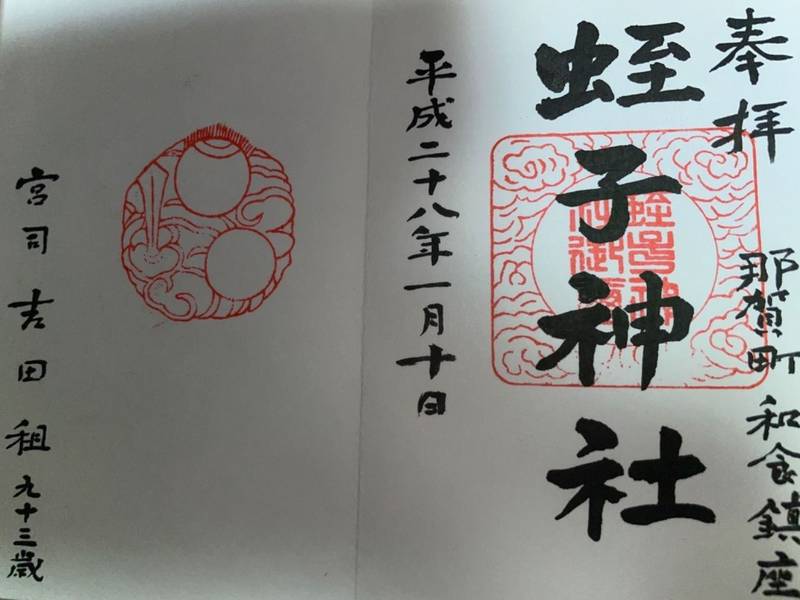 奉拝
那賀町和食鎮座
蛭子神社
平成二十八年一月十日
宮司 吉田租 九十三歳